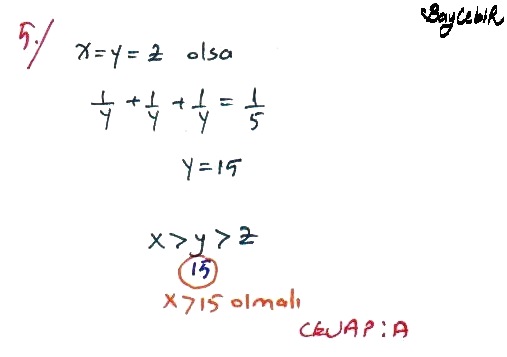 BayCebiR
5./
x = y = z olsa
1/y + 1/y + 1/y = 1/5
y = 15
x > y > z
15
x > 15 olmalı
CEVAP : A